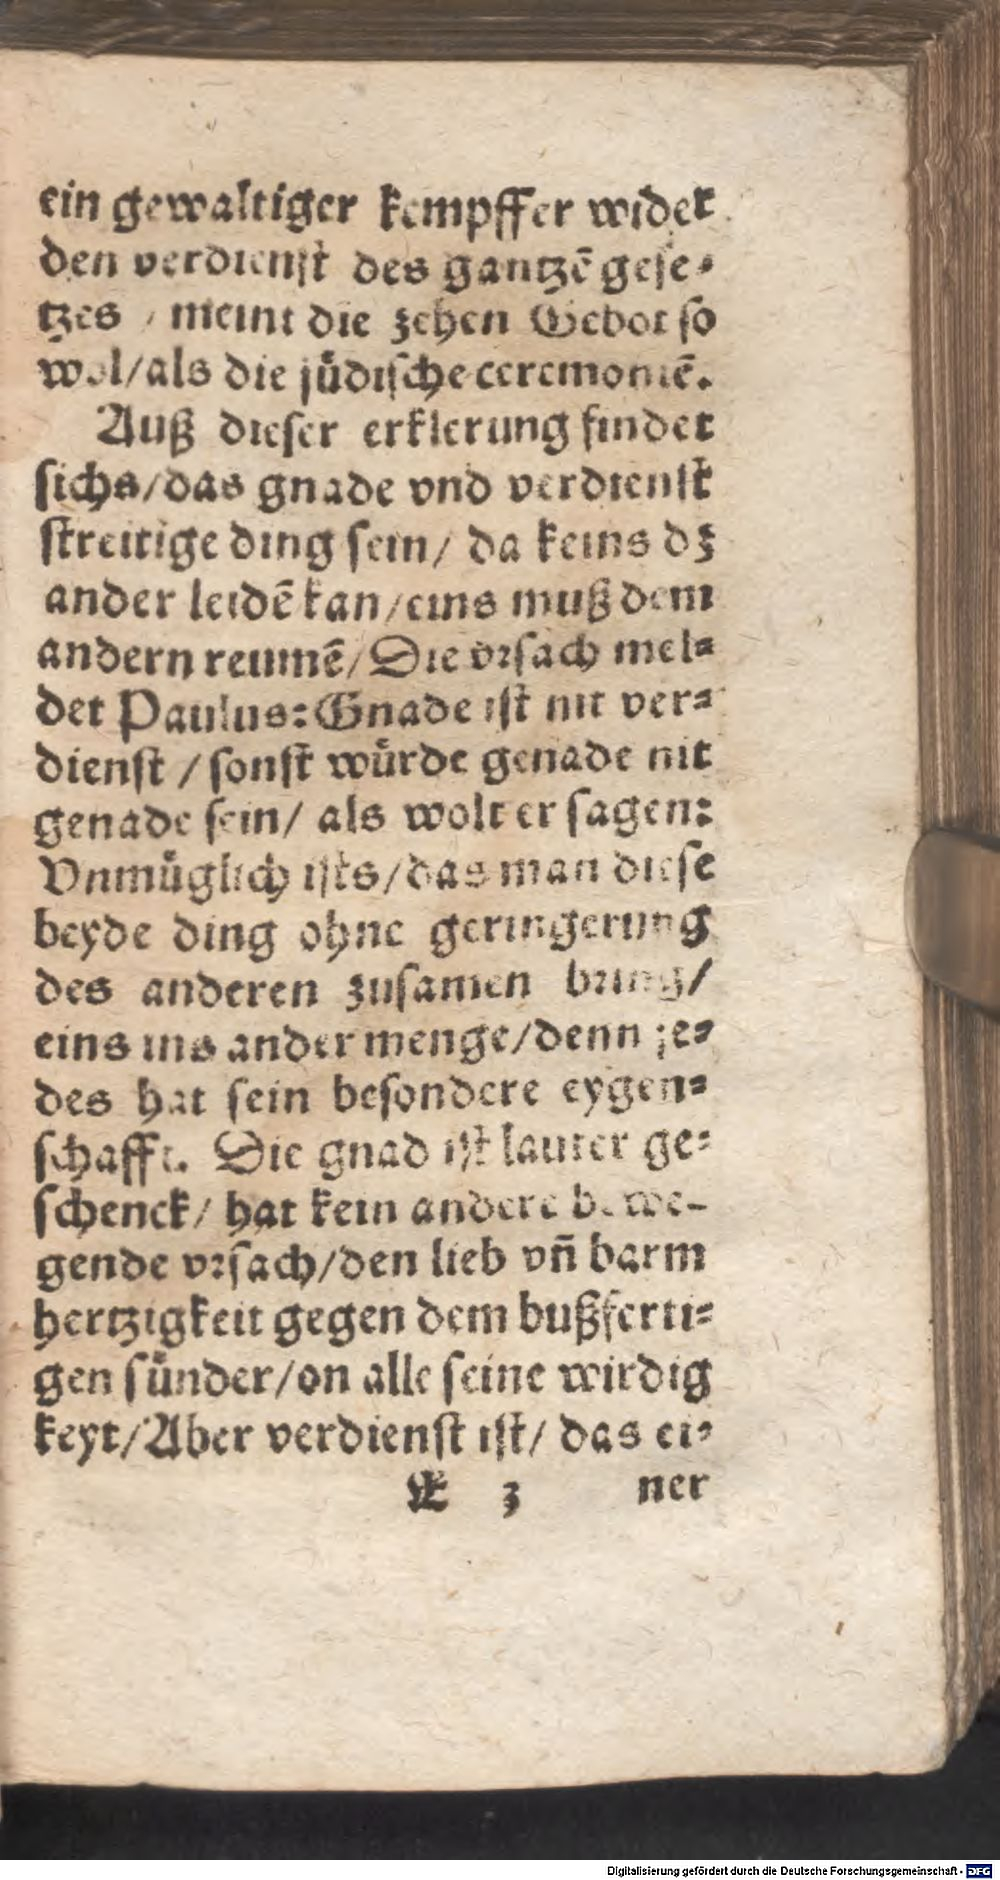 ein gewaltiger kempffer wider
den verdienst des gantzē gese⸗
tzes / meint die zehen Gebot so
wol/als die jüdische ceremoniē.
Auß dieser erklerung findet
sichs/das gnade vnd verdienst
streitige ding sein/ da keins dz
ander leidē kan/eins muß dem
andern reumē/Die vrsach mel⸗
det Paulus: Gnade ist nit ver⸗
dienst / sonst würde genade nit
genade sein/ als wolt er sagen:
Vnmüglich ists/das man diese
beyde ding ohne geringerung
des anderen zusamen bring/
eins ins ander menge/denn je⸗
des hat sein besondere eygen⸗
schafft. Die gnad ist lauter ge⸗
schenck/ hat kein andere bewe⸗
gende vrsach/den lieb vñ barm
hertzigkeit gegen dem bußferti⸗
gen sünder/on alle seine wirdig
keyt/Aber verdienst ist/ das ei⸗
E 3 ner
Digitalisierung gefördert durch die Deutsche Forschungsgemeinschaft - DFG